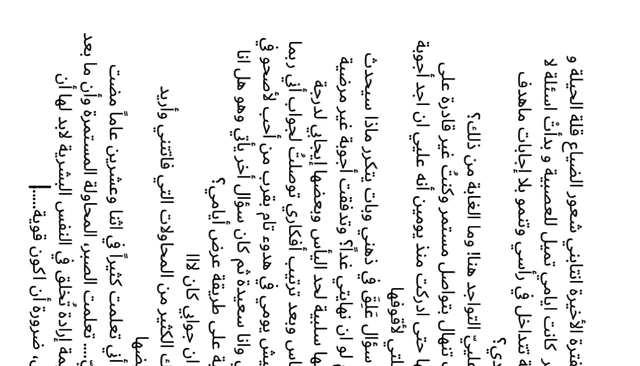 فترة الأخيرة انتابني شعور الضياع قلة الحيلة و
كانت ايامي تميل للعصبية و بدأتُ اسئلة لا
تتداخل في رأسي وتنمو بلا إجابات ماهدف
دي؟
عليّ التواجد هنا! وما الغاية من ذلك؟
تنهال بتواصل مستمر وكنتُ غير قادرة على
ها حتى ادركت منذ يومين أنه عليي ان اجد أجوبة
لتي لأقوفها
سؤال عَلِق في ذهني وبات يتكرر ماذا سيحدث
لو ان نهايتي غداً؟ وتدفقت أجوبة غير مرضية
ها سلبية لحد اليأس وبعضها إيجابي لدرجة
اس وبعد ترتيب أفكاري توصلتُ لجواب أني ربما
يش يومي في هدوء تام بقرب من أحب لأصحو في
وانا سعيدة ثم كان سؤال أخر يأتي وهو هل انا
ة على طريقة عرض أيامي؟
ان جوابي كان لاا
ك الكثير من المحاولات التي فاتتني وأريد
ضها
أني تعلمت كثيراً في اثنا وعشرين عاماً مضت
.... تعلمت الصبر، المحاولة المستمرة وأن ما بعد
مة إرادة تُخلق في النفس البشرية لابد لها أن
، ضرورة أن اكون قوية....